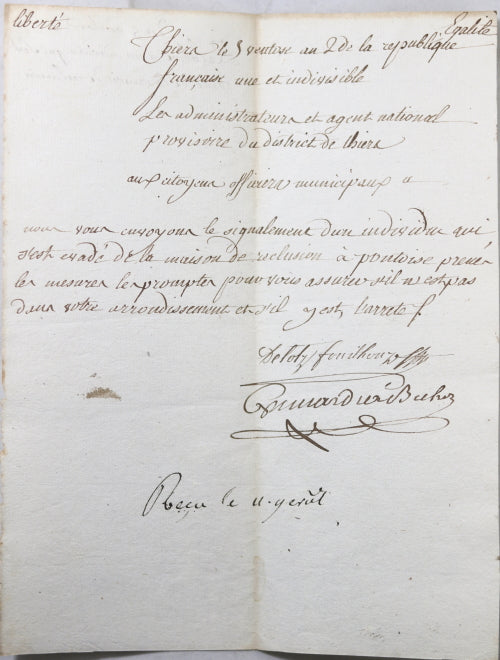 liberté
Egalité
Thiers le 5 ventose an 2 de la republique
francaise une et indivisible
Les administrateurs et agent national
provisoire du district de thiers
aux citoyens officiers municipaux a
nous vous envoyons le signalement dun individu qui
s'est evadé de la maison de reclusion à pontoise prenés
les mesures les promptes pour vous assurer s'il n'est pas
dans votre arrondissement et s'il y est l'arreté
Recu le 11 germl